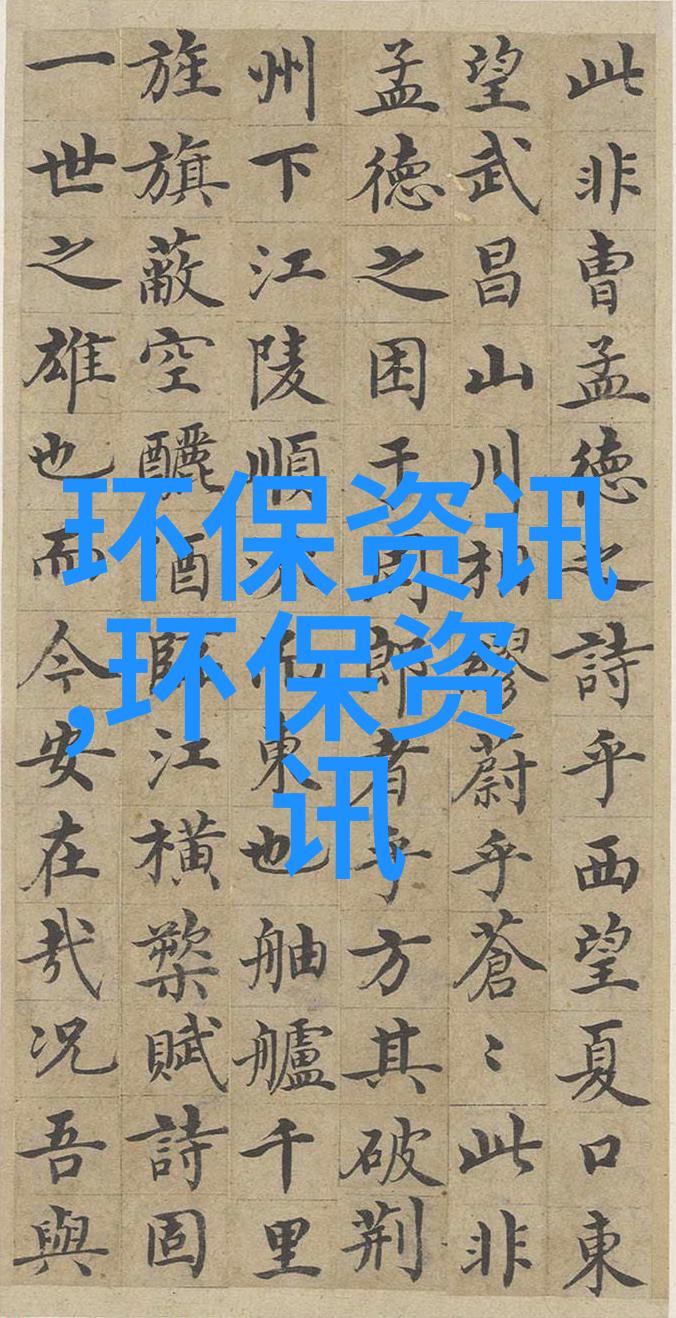 此非曹孟德之詩乎西望夏口東
望武昌山川相繆蔚乎蒼〻此非
孟德之困于周郎者乎方其破荆
州下江陵順流而東也舳艫千里
旌旗蔽空釃酒臨江横槊賦詩固
一世之雄也而今安在哉况吾與
环保资讯
,环保资
讯